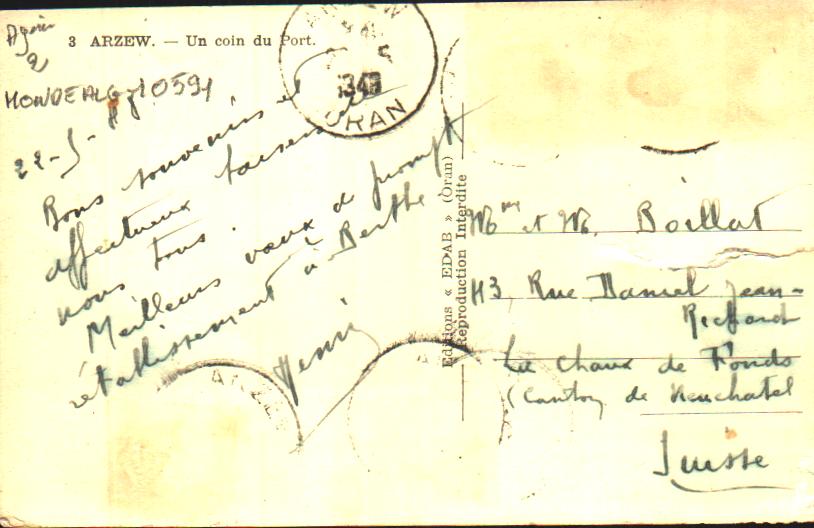 3 ARZEW. — Un coin du Port.
MONDEALG-10591
ARZEW
ORAN
Bons souvenirs et
affectueux baisers
nous tous.
Meilleurs vœux de prompt
rétablissement à Berthe
Henri
Editions « EDAB » (Oran)
Reproduction Interdite
Mme et M. Boillat
43 Rue Daniel Jean-
Richard
La Chaux de Fonds
(Canton de Neuchatel
Suisse
ARZEW